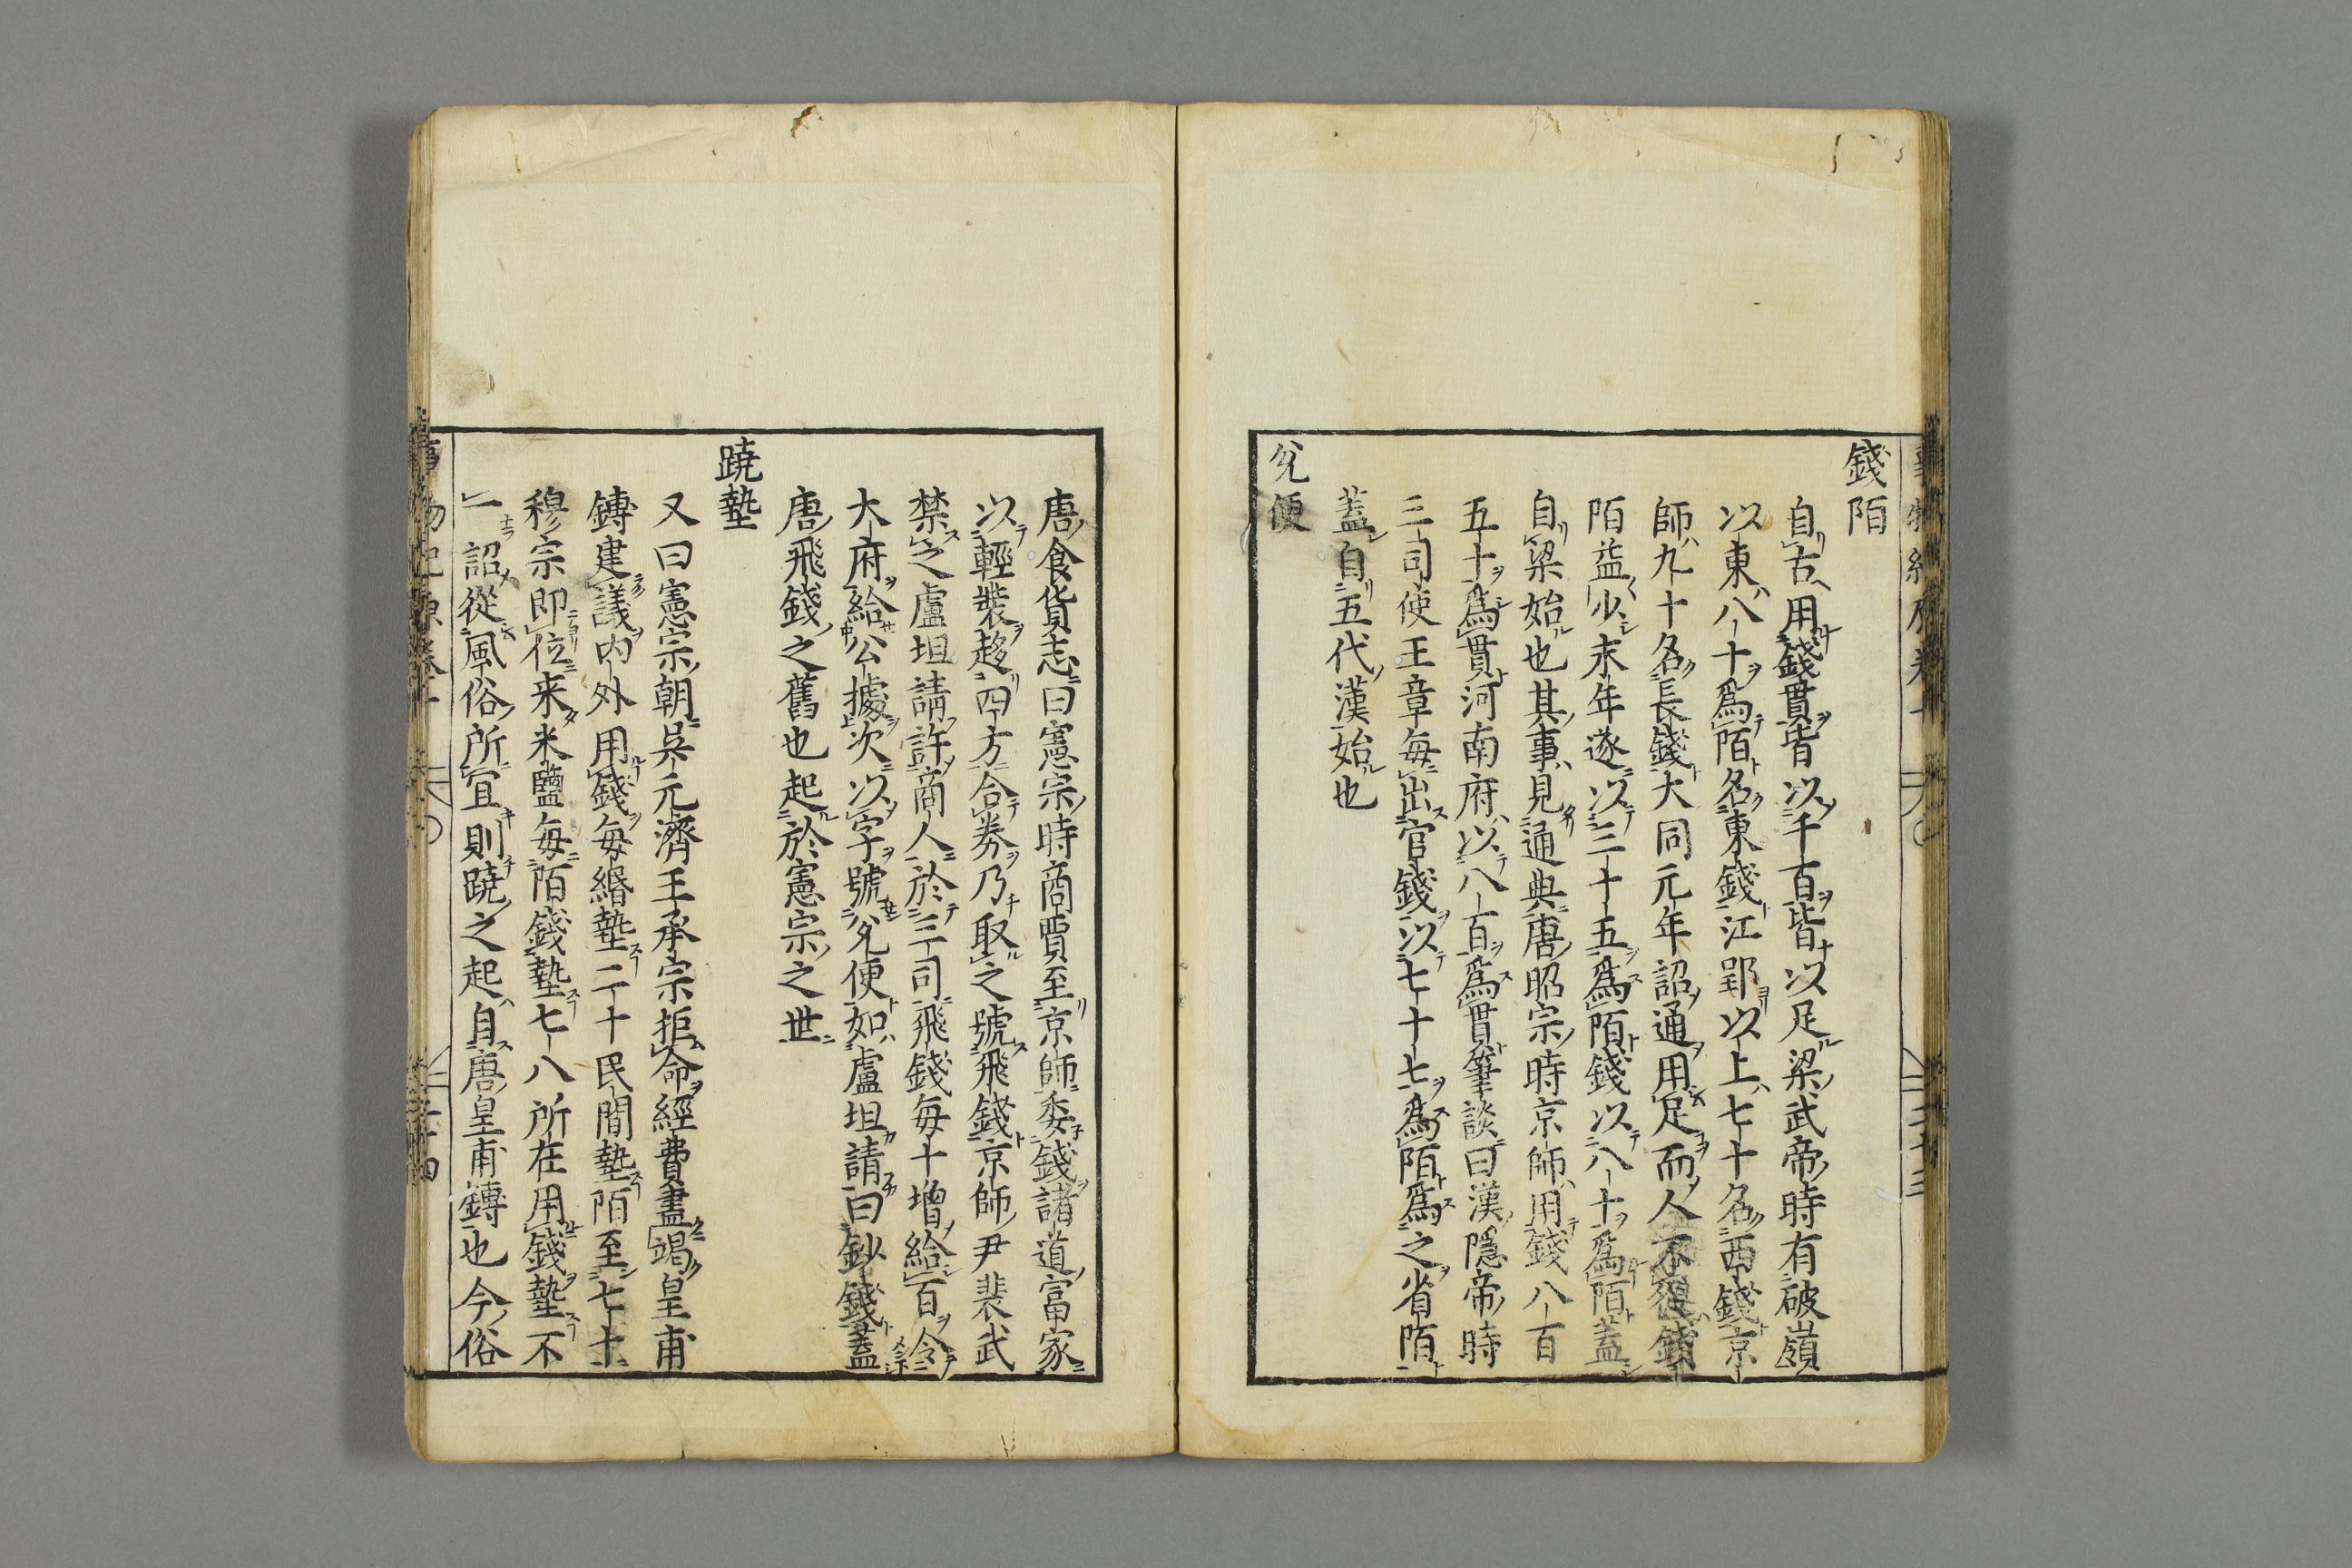 錢陌
自古用錢貫皆以千百皆以足梁武帝時有破嶺
以東八十爲陌名東錢江郢以上七十名西錢京
師九十名長錢大同元年詔通用足而人不從錢
陌益少末年遂以三十五爲陌錢以八十爲陌蓋
自梁始也其事見通典唐昭宗時京師用錢八百
五十爲貫河南府以八百爲貫筆談曰漢隱帝時
三司使王章每出官錢以七十七爲陌爲之省陌
蓋自五代漢始也
兊便
唐食貨志曰憲宗時商賈至京師委錢諸道富家
以輕裝趍四方合券乃取之號飛錢京師尹裴武
禁之盧坦請許商人於三司飛錢每十增給百令
大府給公據次以字號兊便如盧坦請曰鈔錢蓋
唐飛錢之舊也起於憲宗之世
蹺墊
又曰憲宗朝吳元濟王承宗拒命經費盡竭皇甫
鎛建議內外用錢每緡墊二十民間墊陌至七十
穆宗即位来米鹽每陌錢墊七八所在用錢墊不
一詔從風俗所宜則蹺之起自唐皇甫鎛也今俗